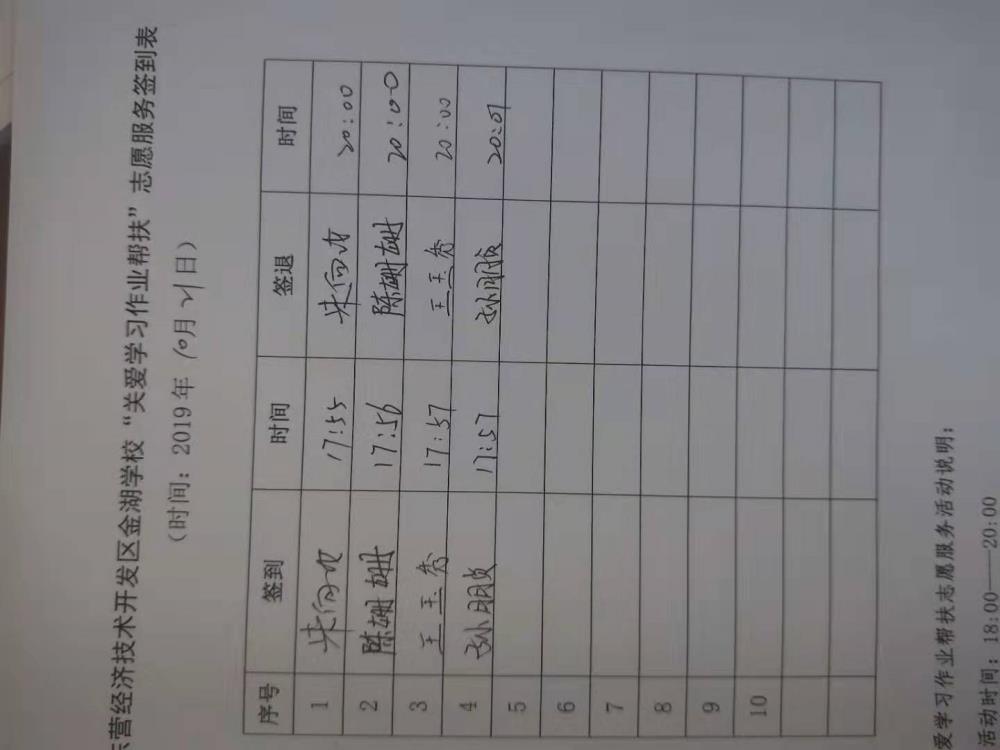 营经济技术开发区金湖学校“关爱学习作业帮扶”志愿服务签到表
(时间：2019年10月21日)
序号 签到 时间 签退 时间
1 朱向 17:55 朱向 20:00
2 陈姗姗 17:56 陈姗姗 20:00
3 王玉秀 17:57 王玉秀 20:00
4 孙朋贞 17:57 孙朋贞 20:01
5
6
7
8
9
10
爱学习作业帮扶志愿服务活动说明：
活动时间：18:00——20:00